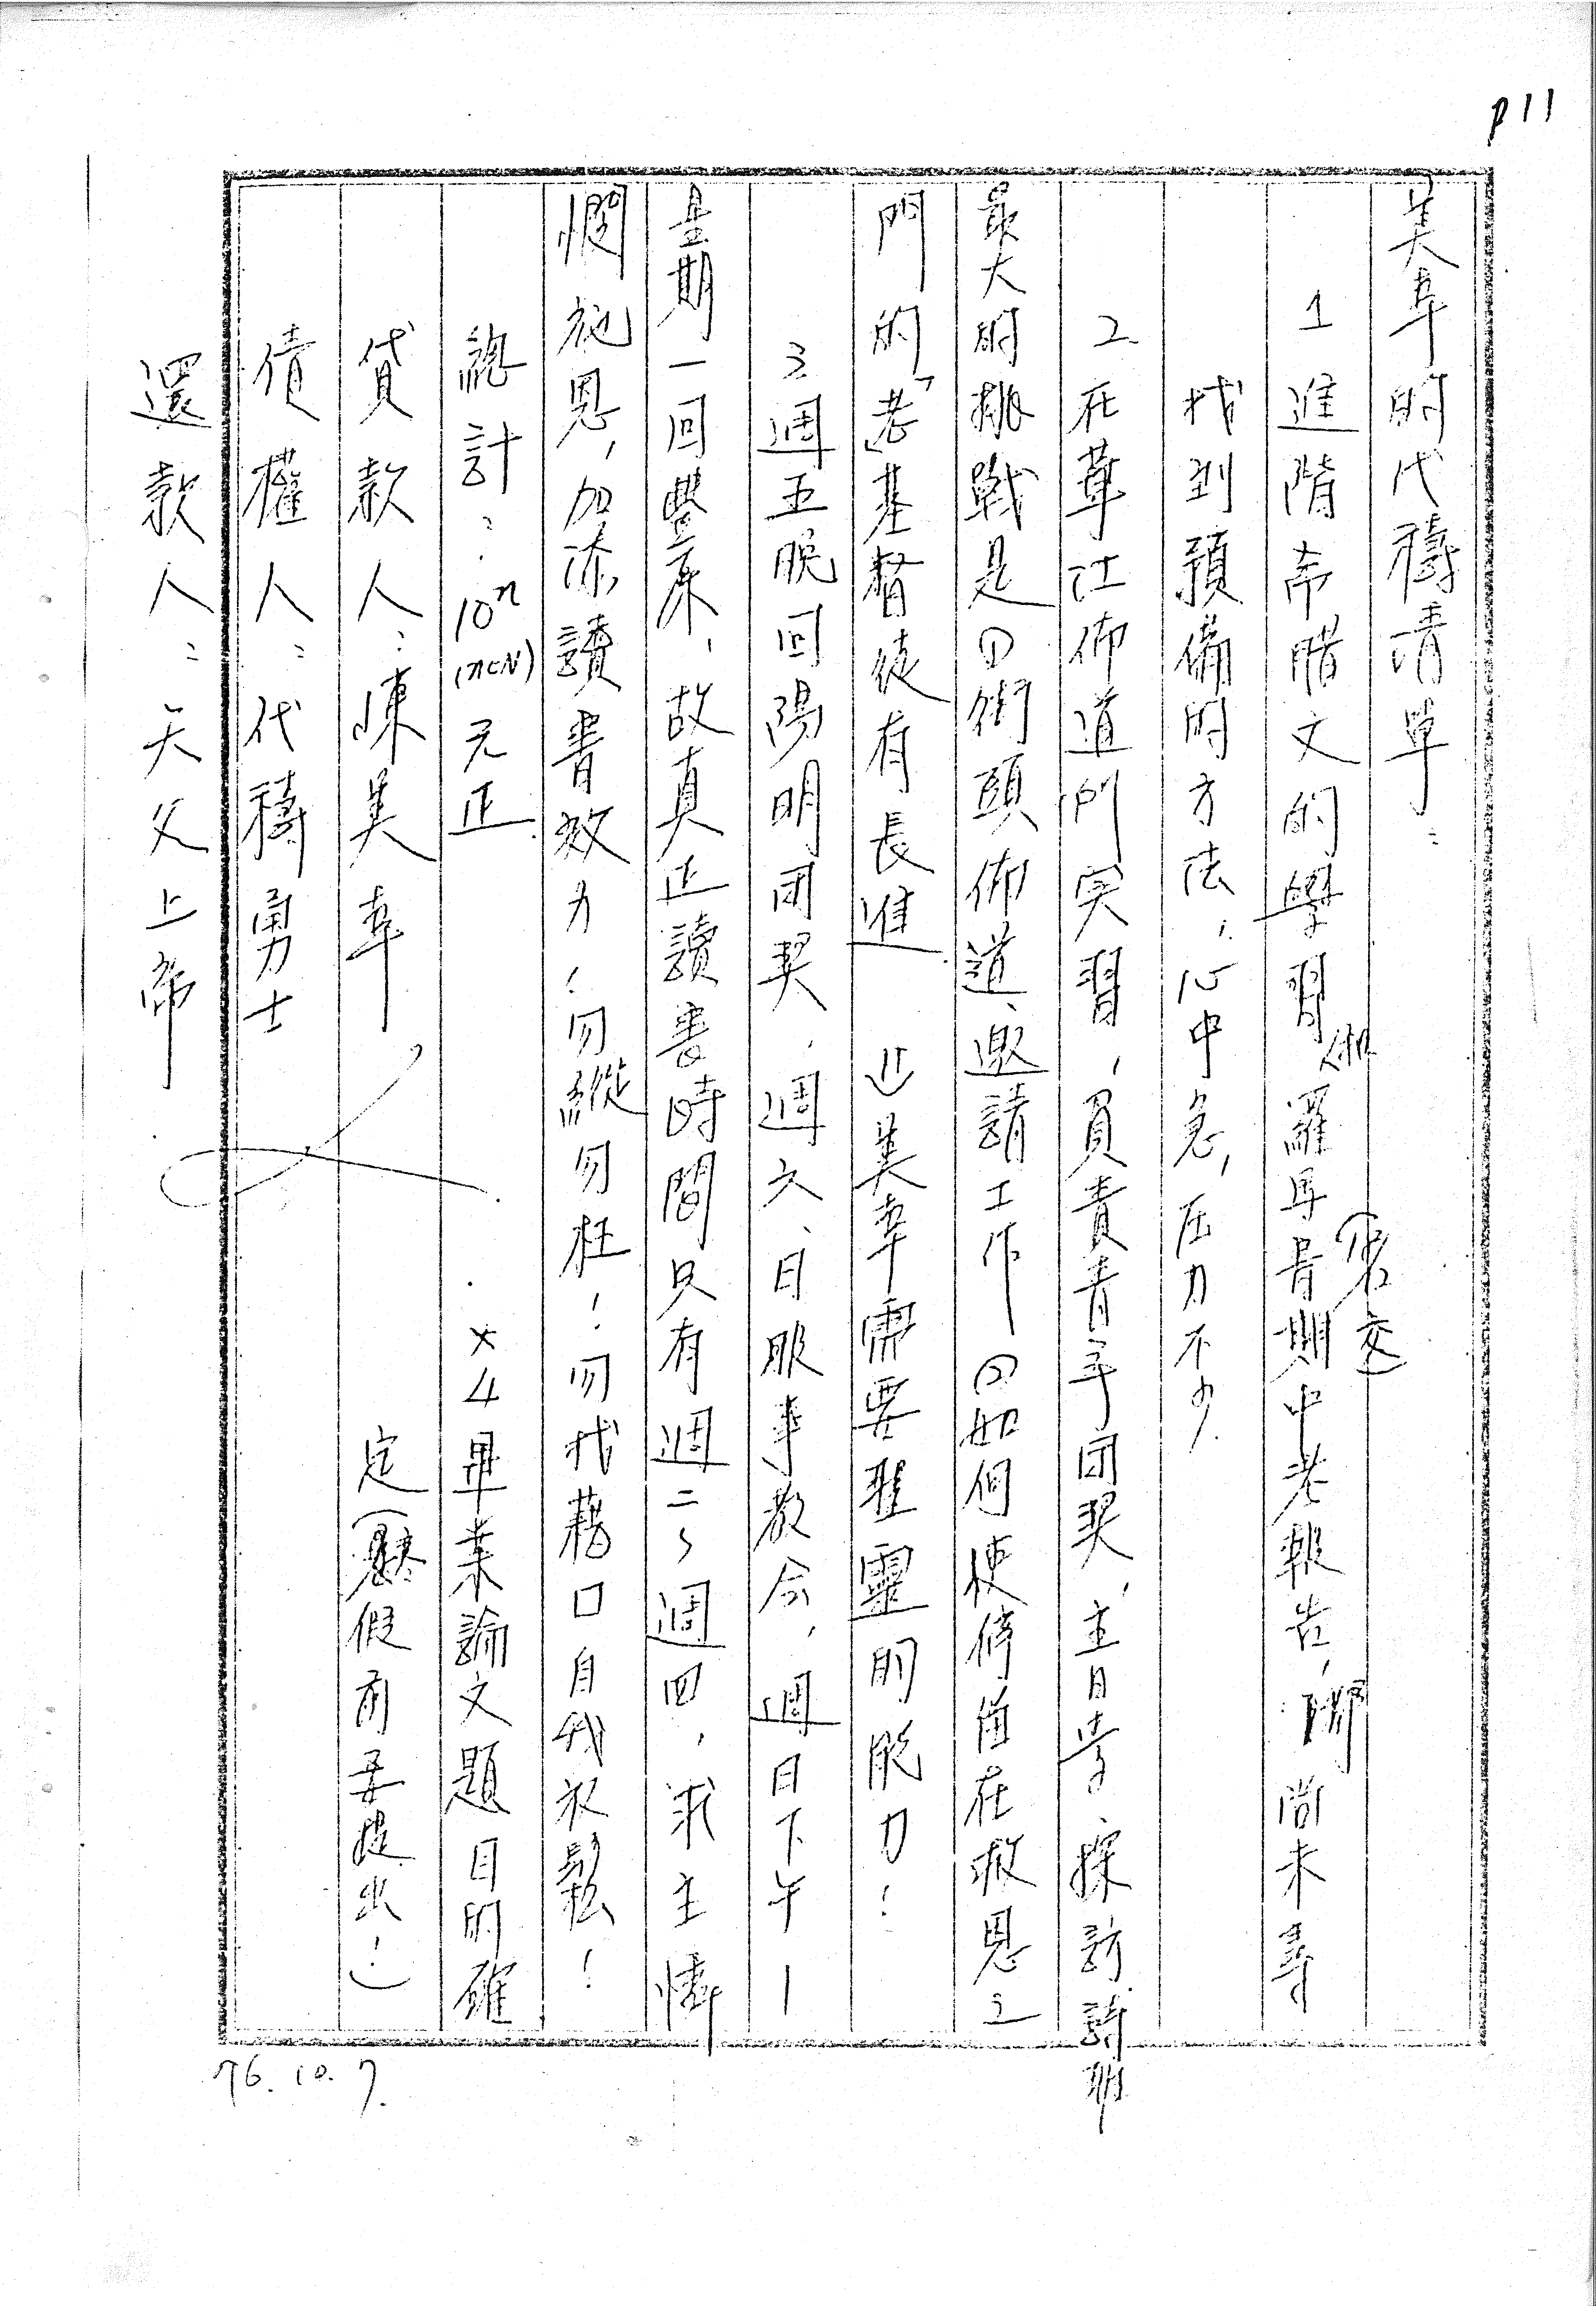 p11
美幸的代禱清單：
1 進階希腊文的學習、羅馬書期中考報告，尚未尋
(需交)
找到預備的方法，心中急，压力不少.
2. 在草江佈道所实習，負責青年团契、主日学、探訪
最大的挑戰是①街頭佈道、邀請工作 ②如何使停留在救恩之
門的「老」基督徒有長進. 美幸需要聖靈的能力！
3. 週五晚回陽明团契，週六、日服事教会，週日下午—
星期一回豐原，故真正讀書時間只有週二~週四，求主憐
憫施恩，加添讀書效力，勿縱勿枉！勿找藉口自我放鬆！
*4 畢業論文題目明確
定(寒假前要提出！)
總計：10ⁿ (n∈N) 元正
貸款人：陳美幸
債權人：代禱勇士
還款人：天父上帝
76.10.7.